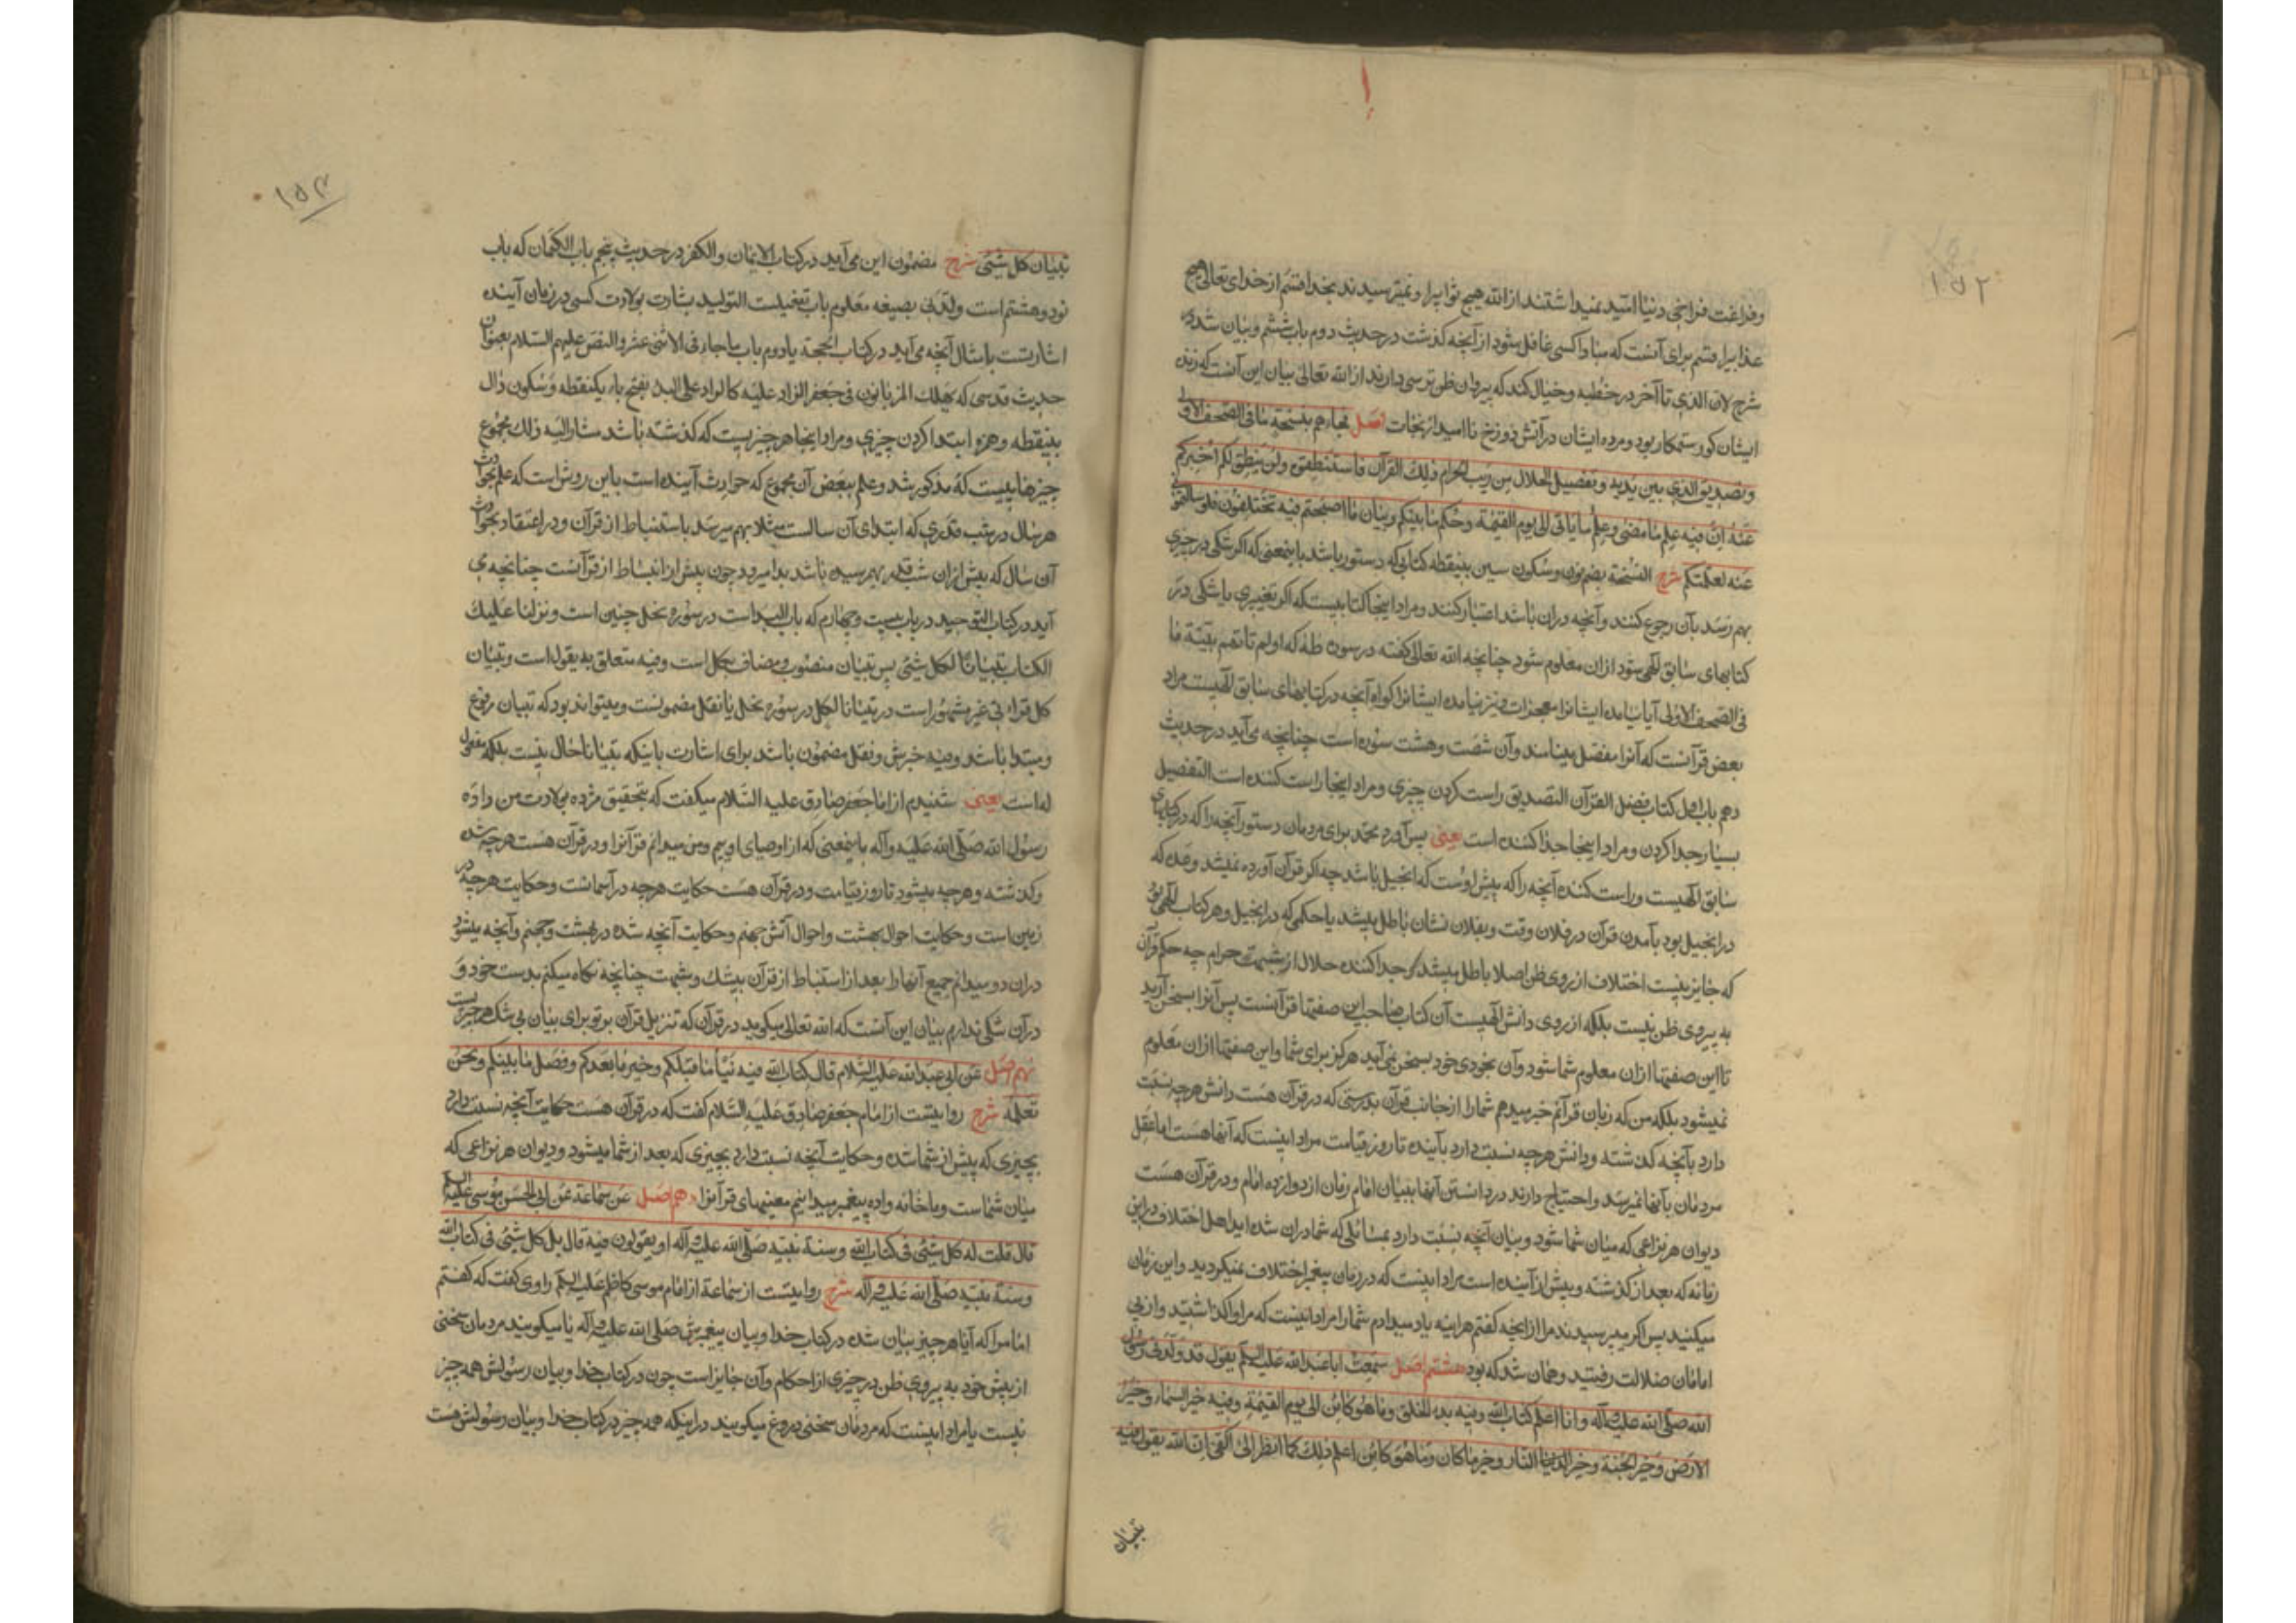 ١٥٢
وفراغت فراخی دنیا امید نمیداشتند از الله هیچ ثوابیرا و نمیترسیدند بخدا قسم از خدای تعالی هیچ
عذابیرا قسم برای آنست که مبادا کسی غافل شود از آنچه گذشت در حدیث دوم باب ششم و بیان شد در
شرح لان الذی تا آخر در خطبه وخیال کند که پیروان ظن ترسی دارند از الله تعالی بیان این آنست که زنده
ایشان کور و ستمکار بود و مرده ایشان در آتش دوزخ نا امید از نجات اصل فجاءهم بنسخة ما فی الصحف الاولی
وتصدیق الذی بین یدیه وتفصیل الحلال من ریب الحرام ذلک القرآن فاستنطقوه ولن ینطق لکم اخبرکم
عنه ان فیه علم ما مضی وعلم ما یاتی الی یوم القیمة وحکم ما بینکم وبیان ما اصبحتم فیه تختلفون فلو سالتمونی
عنه لعلمتکم شرح النسخة بضم نون وسکون سین بینقطه کتابی که دستور باشد باینمعنی که اگر شکی در چیزی
بهم رسد بآن رجوع کنند وآنچه دران باشد اعتبار کنند ومراد اینجا کتابیست که اگر تغییری یا شکی در
کتابهای سابق الهی شود ازان معلوم شود چنانچه الله تعالی گفته در سوره طه که اولم تاتهم بینة ما
فی الصحف الاولی آیا نیامده ایشانرا معجزات ونیز نیامده ایشانرا کواه آنچه در کتابهای سابق الهیست مراد
بعض قرآنست که آنرا مفصل مینامند وآن شصت وهشت سوره است چنانچه می آید در حدیث
دهم باب اول کتاب فضل القرآن التصدیق راست کردن چیزی ومراد اینجا راست کننده است التفصیل
بسیار جدا کردن ومراد اینجا جدا کننده است یعنی پس آورد محمد برای مردمان دستور آنچه را که در کتابهای
سابق الهیست وراست کننده آنچه را که پیش اوست که انجیل باشد چه اگر قرآن آورده نمیشد وعده که
در انجیل بود بآمدن قرآن در فلان وقت وبفلان نشان باطل میشد یا حکمی که در انجیل وهر کتاب الهی بود
که جایز نیست اختلاف از روی ظن اصلا باطل میشد وجدا کننده حلال از شبهت حرام چه حکم قرآن
به پیروی ظن نیست بلکه از روی دانش الهیست آن کتاب صاحب این صفتها قرآنست پس آنرا بسخن آرید
تا این صفتها ازان معلوم شما شود وآن بخودی خود بسخن نمی آید هرگز برای شما واین صفتها ازان معلوم
نمیشود بلکه من که زبان قرآنم خبر میدهم شما را از جانب قرآن بدرستی که در قرآن هست دانش هرچه نسبت
دارد بآنچه گذشته ودانش هرچه نسبت دارد بآینده تا روز قیامت مراد اینست که آنها هست اما عقل
مردمان بآنها نمیرسد واحتیاج دارند در دانستن آنها ببیان امام زمان از دوازده امام ودر قرآن هست
دیوان هر نزاعی که میان شما شود وبیان آنچه نسبت دارد بمسائلی که شما دران شده اید اهل اختلاف در این
زمانه که بعد از گذشته وپیش از آینده است مراد اینست که در زمان پیغمبر اختلاف نمیکردید واین زمان
میکنید پس اگر میپرسیدند مرا از آنچه گفتم هرآینه یاد میدادم شما را مراد اینست که مرا واگذاشتید واز پی
امامان ضلالت رفتید وهمان شد که بود هشتم اصل سمعت ابا عبدالله علیه السلم یقول قد ولدنی رسول
الله صلی الله علیه وآله وانا اعلم کتاب الله وفیه بدء الخلق وما هو کائن الی یوم القیمة وفیه خبر السماء وخبر
الارض وخبر الجنة وخبر النار وخبر ما کان وما هو کائن اعلم ذلک کما انظر الی کفی ان الله یقول فیه
تبیان
١٥٣
تبیان کل شیٔ شرح مضمون این می آید در کتاب الایمان والکفر در حدیث پنجم باب الکتمان که باب
نود وهشتم است ولدنی بصیغه معلوم باب تفعیلست التولید بشارت بولادت کسی در زمان آینده
اشارتست بامثال آنچه می آید در کتاب الحجة یا دوم باب ما جاء فی الاثنی عشر والنص علیهم السلام بعنوان
حدیث قدسی که سیهلک المرتابون فی جعفر الراد علیه کالراد علی البدء بفتح باء یکنقطه وسکون دال
بینقطه وهمزه ابتدا کردن چیزی ومراد اینجا هر چیزیست که گذشته باشد مشار الیه ذلک مجموع
چیزهاییست که مذکور شد وعلم ببعض آن مجموع که حوادث آینده است باین روش است که علم بحوادث
هر سال در شب قدری که ابتدای آن سالست مثلا بهم میرسد باستنباط از قرآن ودر اعتقاد بحوادث
آن سال که پیش ازان شب قدر بهم رسیده باشد بدا میرود چون پیش از انبساط از قرآنست چنانچه می
آید در کتاب التوحید در باب بیست وچهارم که باب البداست در سوره نحل چنین است ونزلنا علیک
الکتاب تبیانا لکل شیٔ پس تبیان منصوب ومضاف بکل است وفیه متعلق به یقول است وتبیان
کل قراءتی غیر مشهور است در تبیانا لکل در سوره نحل یا نقل مضمونست ومیتواند بود که تبیان مرفوع
ومبتدا باشد وفیه خبرش ونقل مضمون باشد برای اشارت باینکه تبیانا حال نیست بلکه مفعول
له است یعنی شنیدم از امام جعفر صادق علیه السلام میگفت که بتحقیق مژده بولادت من داده
رسول الله صلی الله علیه وآله باینمعنی که از اوصیای اویم ومن میدانم قرآنرا ودر قرآن هست هرچه شده
وگذشته وهرچه میشود تا روز قیامت ودر قرآن هست حکایت هرچه در آسمانست وحکایت هرچه در
زمین است وحکایت احوال بهشت واحوال آتش جهنم وحکایت آنچه شده در بهشت وجهنم وآنچه میشود
دران دو میدانم جمیع آنها را بعد از استنباط از قرآن بیشک وشبهت چنانچه نگاه میکنم بدست خود و
در آن شکی ندارم بیان این آنست که الله تعالی میگوید در قرآن که تنزیل قرآن بر تو برای بیان بی شک هر چیزیست
نهم اصل عن ابی عبدالله علیه السلام قال کتاب الله فیه نبأ ما قبلکم وخبر ما بعدکم وفصل ما بینکم ونحن
نعلمه شرح روایتست از امام جعفر صادق علیه السلام گفت که در قرآن هست حکایت آنچه نسبت دارد
بچیزی که پیش از شما شده وحکایت آنچه نسبت دارد بچیزی که بعد از شما میشود ودیوان هر نزاعی که
میان شماست وما خانه واده پیغمبر میدانیم معنیهای قرآنرا دهم اصل عن سماعة عن ابی الحسن موسی علیه السلم
قال قلت له کل شیٔ فی کتاب الله وسنة نبیه صلی الله علیه وآله او یقولون فیه قال بل کل شیٔ فی کتاب الله
وسنة نبیه صلی الله علیه وآله شرح روایتست از سماعة از امام موسی کاظم علیه السلم راوی گفت که گفتم
امام را که آیا هر چیز بیان شده در کتاب خدا وبیان پیغمبرش صلی الله علیه وآله یا میگویند مردمان سخنی
از پیش خود به پیروی ظن در چیزی از احکام وآن جایز است چون در کتاب خدا وبیان رسولش همه چیز
نیست یا مراد اینست که مردمان سخنی دروغ میگویند در اینکه همه چیز در کتاب خدا وبیان رسولش هست